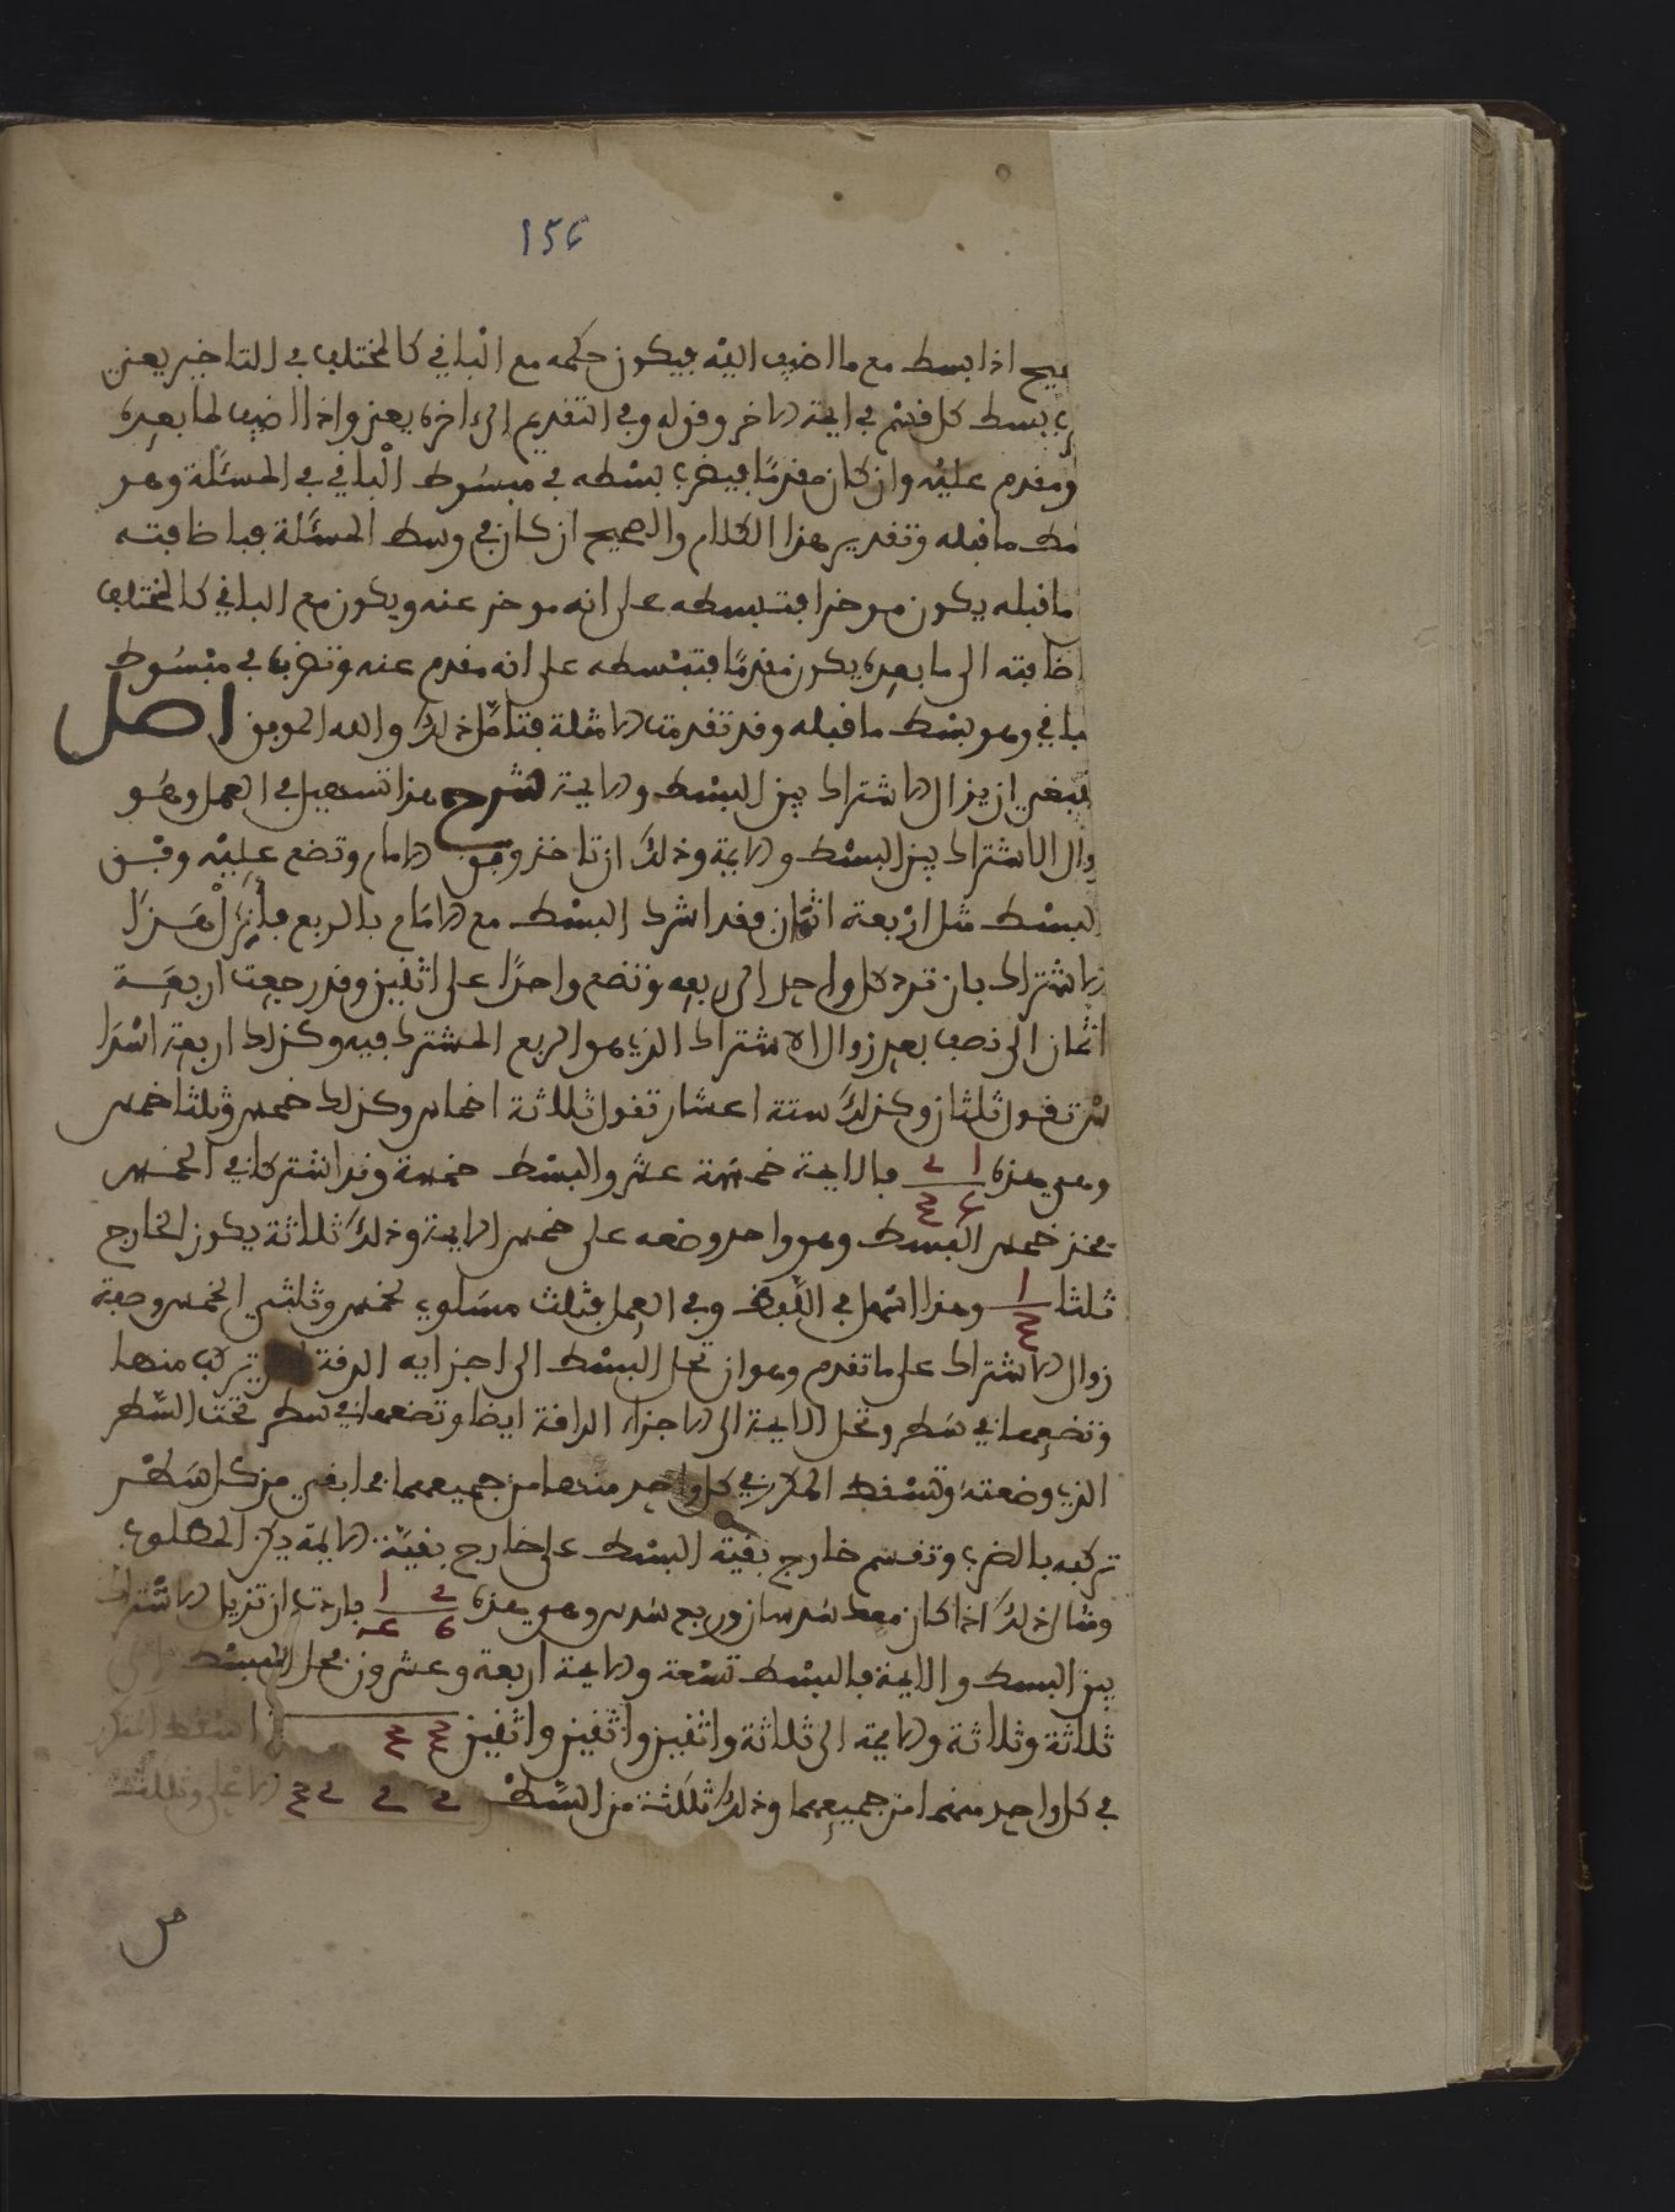 156
حيح اذا بسط مع ما اضيف اليه فيكون حكمه مع الباقي كالمختلف في التاخير يعني
يبسط كل قسم في ايمة الاخر وقوله وفي التقديم الى اخره يعني واذا اضيف لما بعده
ومقدم عليه وان كان مقدما فيضرب بسطه في مبسوط الباقي في المسئلة وهو
بسط ما قبله وتقدير هذا الكلام والصحيح ان كان في وسط المسئلة فباضافته
ما قبله يكون موخرا فتبسطه على انه موخر عنه ويكون مع الباقي كالمختلف
اضافته الى ما بعده يكون مقدما فتبسطه على انه مقدم عنه وتضربه في مبسوط
باقي وهو بسط ما قبله وقد تقدمت الامثلة فتامل ذلك والله الموفق اصل
ينبغي ان يزال الاشتراك بين البسط والايمة شرح هذا تسهيل في العمل وهو
زوال الاشتراك بين البسط والايمة وذلك ان تاخذ وفق الامام وتضع عليه وفق
البسط مثل اربعة اثمان فقد اشترك البسط مع الامام بالربع فازل هذا
الاشتراك بان ترد كل واحد الى ربعه وتضع واحدا على اثنين وقد رجعت اربعة
اثمان الى نصف بعد زوال الاشتراك الذي هو الربع المشترك فيه وكذلك اربعة اسدا
س تقول ثلثان وكذلك ستة اعشار تقول ثلاثة اخماس وكذلك خمس وثلثا خمس
وهي هذه فالايمة خمسة عشر والبسط خمسة وقد اشتركا في الخمس
فخذ خمس البسط وهو واحد وضعه على خمس الايمة وذلك ثلاثة يكون الخارج
ثلثا ١ ٣ وهذا اسهل في اللفظ وفي العمل فثلث مساوي لخمس وثلثي الخمس وصفة
زوال الاشتراك على ما تقدم وهو ان تحل البسط الى اجزايه الدقة تركب منها
وتضعها في سطر وتحل الايمة الى الاجزاء الدافة ايضا وتضعها في سطر تحت السطر
الذي وضعته وتسقط المكرر في كل واحد منهما من جميعهما فما بقي من كل سطر
تركبه بالضرب وتقسم خارج بقية البسط على خارج بقية الايمة يكن المطلوب
ومثال ذلك اذا كان معك سدسان وربع سدس وهي هذه فاردت ان تزيل الاشتراك
بين البسط والايمة فالبسط تسعة والايمة اربعة وعشرون فحل البسط الى
ثلاثة وثلاثة والايمة الى ثلاثة واثنين واثنين واثنين ٣ ٣ اسقط المكرر
في كل واحد منهما من جميعهما وذلك ثلثة من السطر ٢ ٢ ٢ ٣ الاعلى وثلثة
من